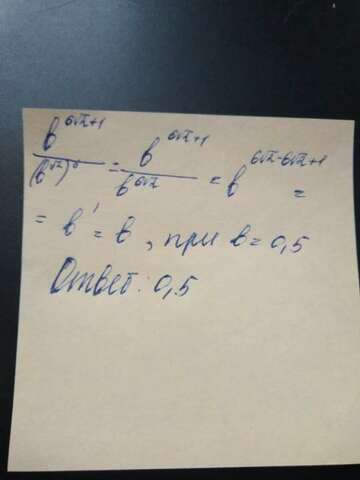 b^(6√2+1)/(b^√2)^6 = b^(6√2+1)/b^(6√2) = b^(6√2-6√2+1) =
= b^1 = b, при b = 0,5
Ответ: 0,5